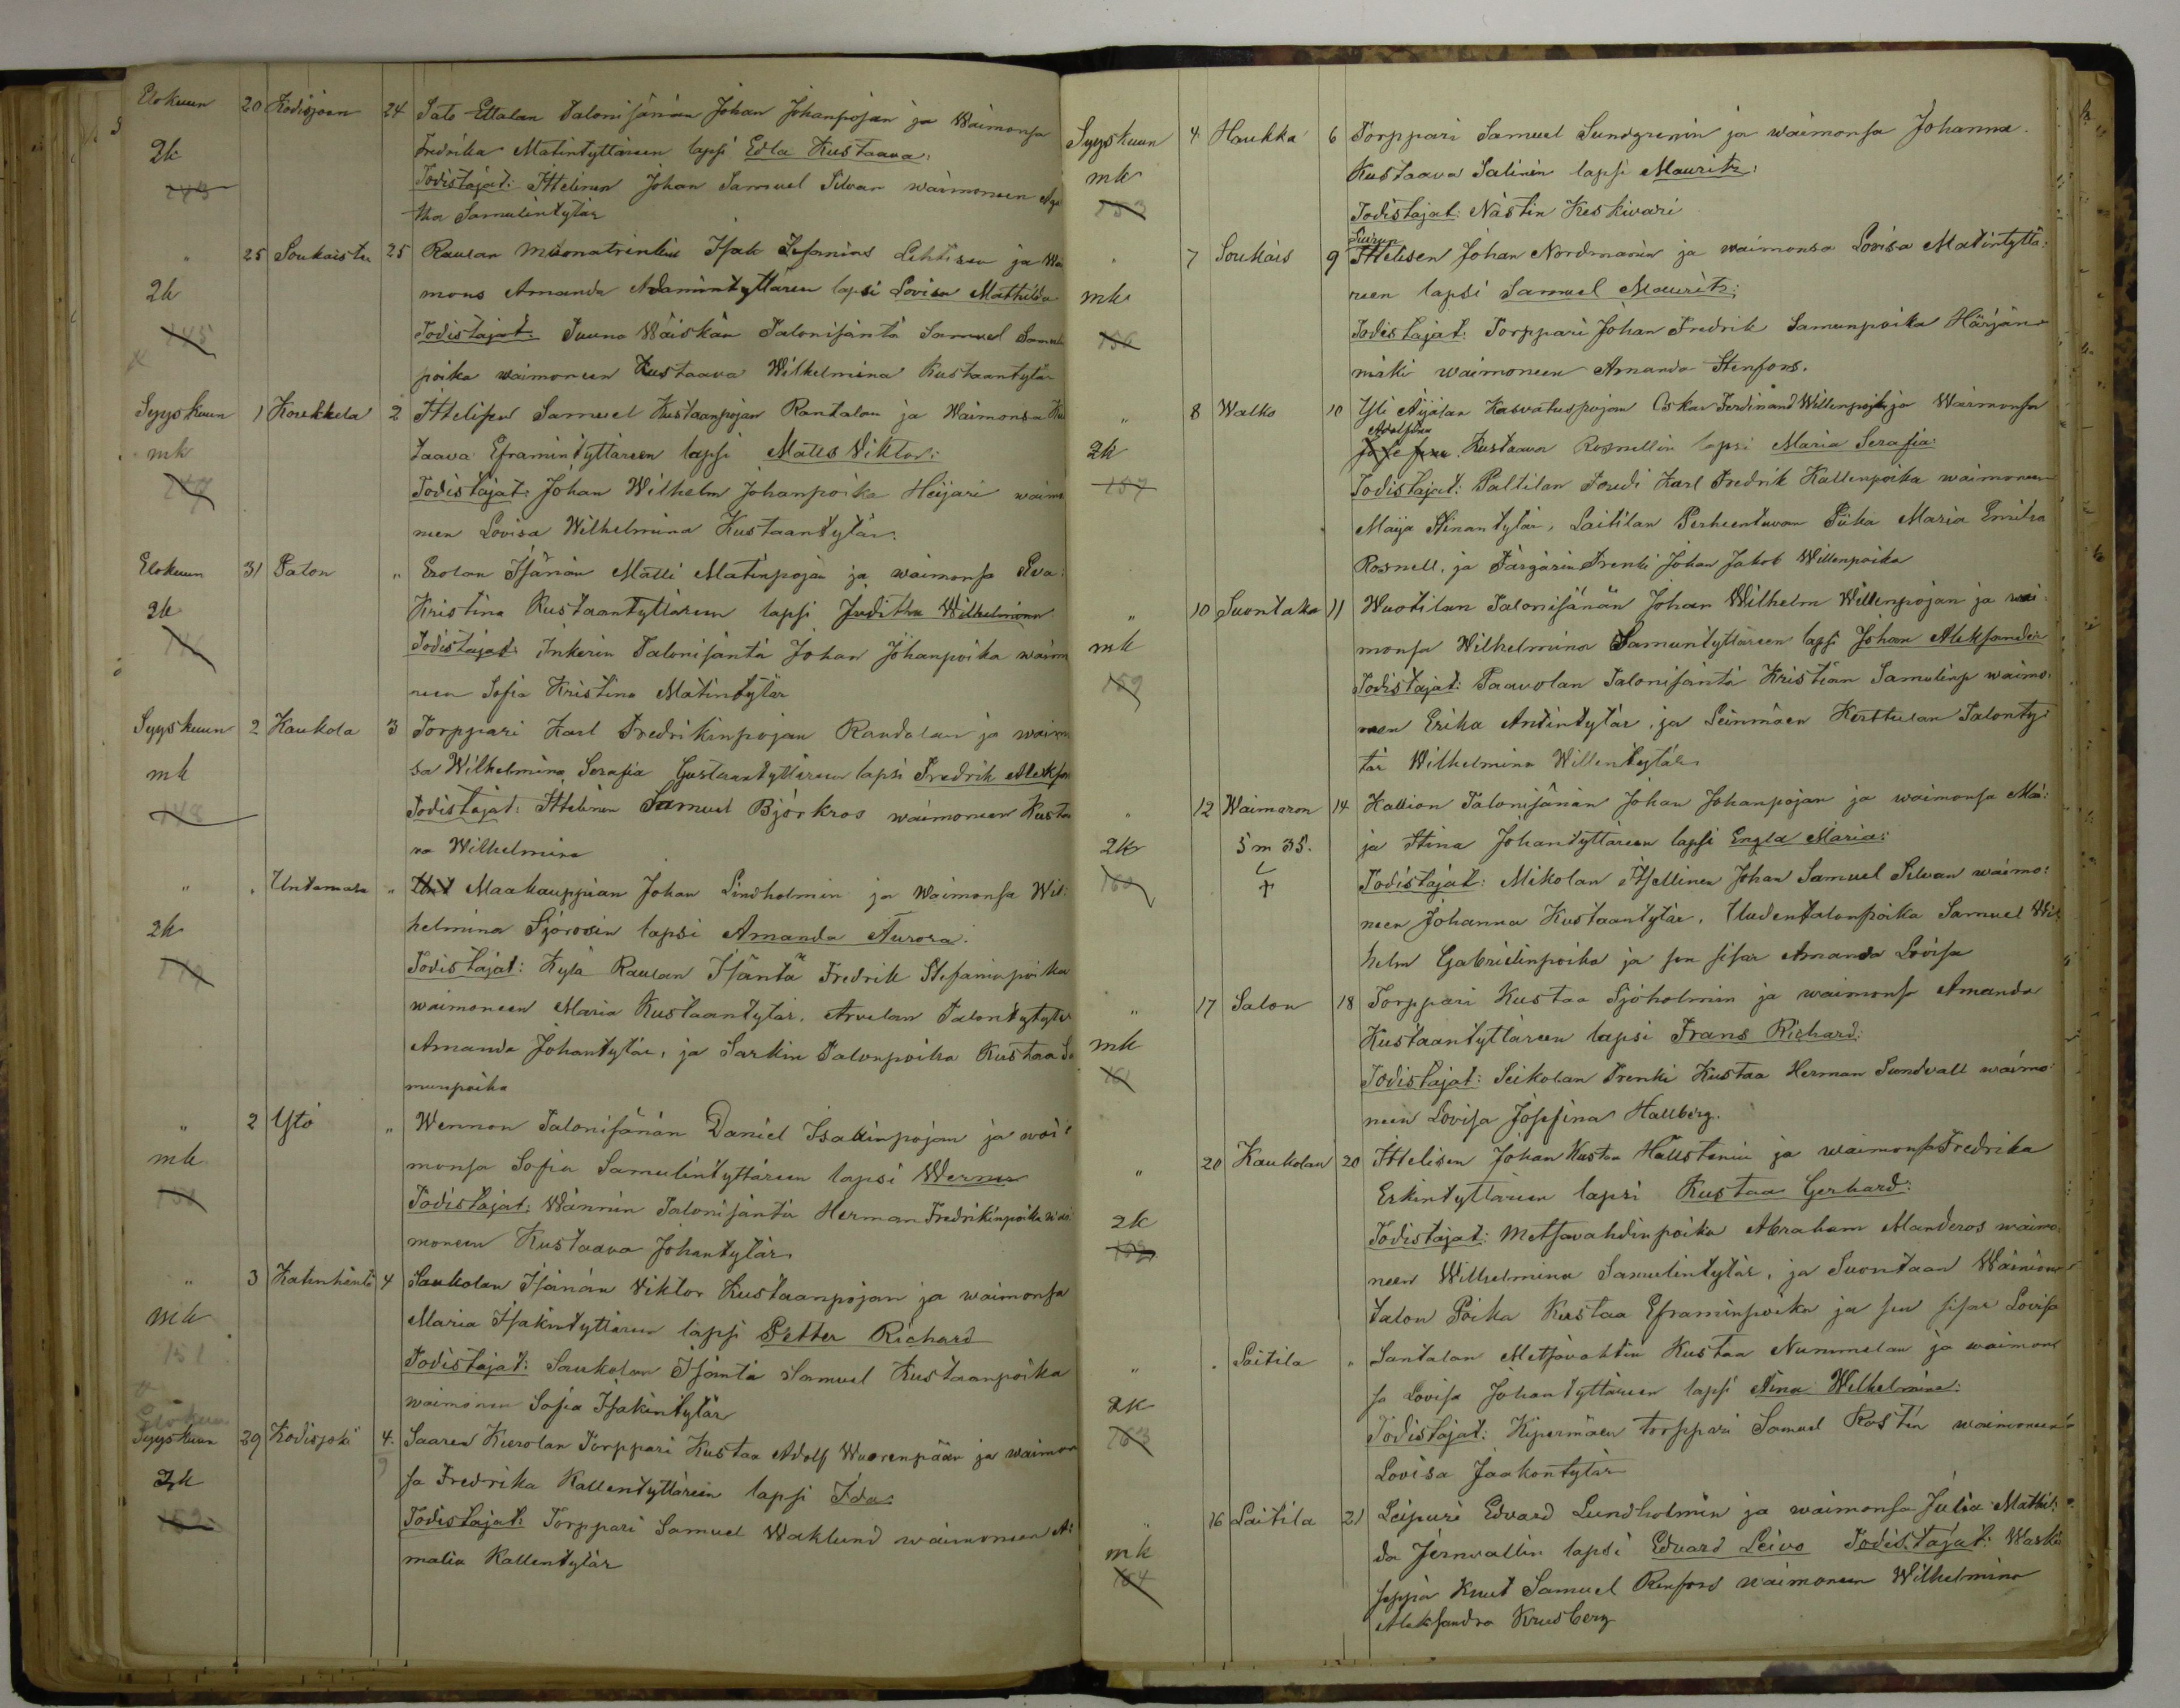 Elokuun 20 Kodisjoen 24 Sato Ettalan Talonisänän Johan Johanpojan ja Waimonsa
2k Fredrika Matintyttären lapsi Edla Kustaava:
Todistajat: Ittelinen Johan Samuel Silvan waimoneen Aga
tha Samulintytär
" 25 Soukaisten 25 Raulan Muonatrenkin Isak Stefanius Lehtisen ja Wai
2k mons Amanda Adamintyttären lapsi Lovisa Mathilda
145 Todistajat: Juuna Wäiskän Talonisäntä Samuel Samuli
poika waimoneen Kustaava Wilhelmina Kustaantytär
Syyskuun 1 Koukkela 2 Ittelisen Samuel Kustaanpojan Rantalan ja Waimonsa Kus
mk taava Eframintyttären lapsi Matts Viktor:
147 Todistajat: Johan Wilhelm Johanpoika Heijari waimo
neen Lovisa Wilhelmina Kustaantytär.
Elokuun 31 Palon " Erolan Isänän Matti Matinpojan ja waimonsa Eva:
2k Kristina Kustaantyttären lapsi Juditha Wilhelmina
146 Todistajat: Inkerin Talonisäntä Johan Johanpoika waimo
neen Sofia Kristina Matintytär
Syyskuun 2 Kaukola 3 Torppari Karl Fredrikinpojan Randalan ja waimon
mk sa Wilhelmina Serafia Gustaantyttären lapsi Fredrik Aleksan
148 Todistajat: Ittelinen Samuel Björkros waimoneen Kusta
va Wilhelmina
" " Untamala " Maakauppian Johan Lindholmin ja Waimonsa Wil:
2k helmina Sjöroosin lapsi Amanda Aurora.
149 Todistajat: Kylä Raulan Isäntä Fredrik Stefaninpoika
waimoneen Maria Kustaantytär. Arvelan Talontytytär
Amanda Johantytär, ja Sarkin Talonpoika Kustaa Sa
munpoika
" 2 Ytö " Wennon Talonisänän Daniel Isakinpojan ja wai:
mk monsa Sofia Samulintyttären lapsi Werner
150 Todistajat: Wännin Talonisäntä Herman Fredrikinpoika wai
moneen Kustaava Johantytär
" 3 Katinhäntä 4 Saukolan Isänän Viktor Kustaanpojan ja waimonsa
mk Maria Isakintyttären lapsi Petter Richard
151 Todistajat: Saukolan Isäntä Samuel Kustaanpoika
waimoneen Sofia Isakintytär
Elokuun
Syyskuun 29 Kodisjoki 4. Saaren Kierolan Torppari Kustaa Adolf Wuorenpään ja waimon
2k sa Fredrika Kallentyttären lapsi Ida:
152 Todistajat: Torppari Samuel Waklund waimoneen A:
malia Kallentytär
Syyskuun 4 Haukka 6 Torppari Samuel Sundgrenin ja waimonsa Johanna
mk Kustaava Salinin lapsi Mauritz:
153 Todistajat: Nästin Keskivari
" 7 Soukais 9 Ittelisen Johan Nordmanin ja waimonsa Lovisa Matintyttä:
mk reen lapsi Samuel Mauritz:
156 Todistajat: Torppari Johan Fredrik Samunpoika Härjän
mäki waimoneen Amanda Stenfors.
" 8 Walko 10 Yli Äijälan Kasvatuspojan Oskar Ferdinand Willenpojan ja Waimonsa
Adolfina
2k Josefina Kustaava Rosnellin lapsi Maria Serafia:
157 Todistajat: Paltilan Karl Fredrik Kallenpoika waimoneen
Maija Stinantytär, Laitilan Perheentuvan Piika Maria Emilia
Rosnell, ja Färgärin Trenki Johan Jakob Willenpoika
" 10 Suontaka 11 Wuotilan Talonisänän Johan Wilhelm Willenpojan ja wai
mk monsa Wilhelmina Samuntyttären lapsi Johan Aleksander
159 Todistajat: Paavolan Talonisäntä Kristian Samulinp waimo
neen Erika Antintytär, ja Seinmäen Kerttulan Talonty
tär Wilhelmina Willentytär
" 12 Waimaron 14 Kallion Talonisänän Johan Johanpojan ja waimonsa Ma:
2k 5 m 35. ja Stina Johantyttären lapsi Engla Maria:
160 Todistajat: Mikolan Itsellinen Johan Samuel Silvan waimo:
neen Johanna Kustaantytär, Uudentalonpoika Samuel Wil
helm Gabrielinpoika ja sen sisar Amanda Lovisa
" 17 Salon 18 Torppari Kustaa Sjöholmin ja waimonsa Amanda
mk Kustaantyttären lapsi Frans Richard:
161 Todistajat: Seikolan Trenki Kustaa Herman Sundvall waimo
neen Lovisa Josefina Hallberg.
" 20 Kaukolan 20 Ittelisen Johan Kustaa Hällstenin ja waimonsa Fredrika
Erkintyttären lapsi Kustaa Gerhard:
2k Todistajat: Metsavahdinpoika Abraham Manderos waimo
neen Wilhelmina Samulintytär, ja Suontaan Wäiniön
talon Poika Kustaa Eframinpoika ja sen sisar Lovisa
" " Laitila " Santalan Metsävahtin Kustaa Nummelan ja waimon
2k sa Lovisa Johantyttären lapsi Aina Wilhelmina:
163 Todistajat: Kipermäen torppari Samuel Rostin waimoneen
Lovisa Jaakontytär
" 16 Laitila 21 Leipuri Edvard Lundholmin ja waimonsa Julia Mathil:
mk da Jernvallin lapsi Edvard Leivo Todistajat: Waski
164 seppä Knut Samuel Renfors waimoneen Wilhelmina
Aleksandra Krusberg